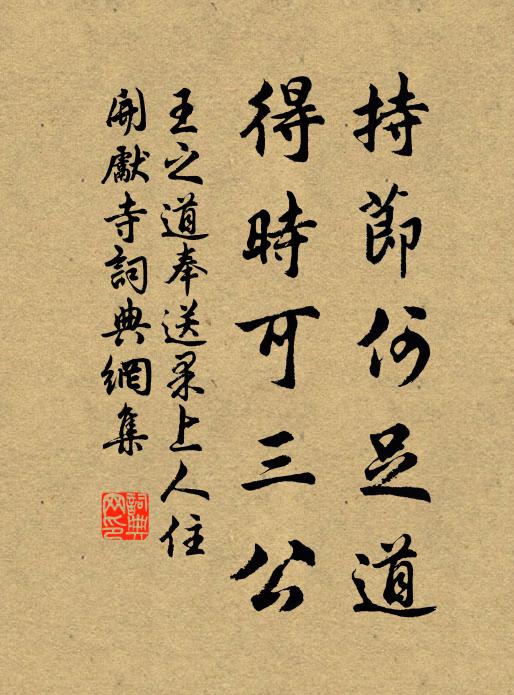 持節何足道
得時可三公
王之道奉送杲上人住
開獻寺詞典網集
詞典
网印